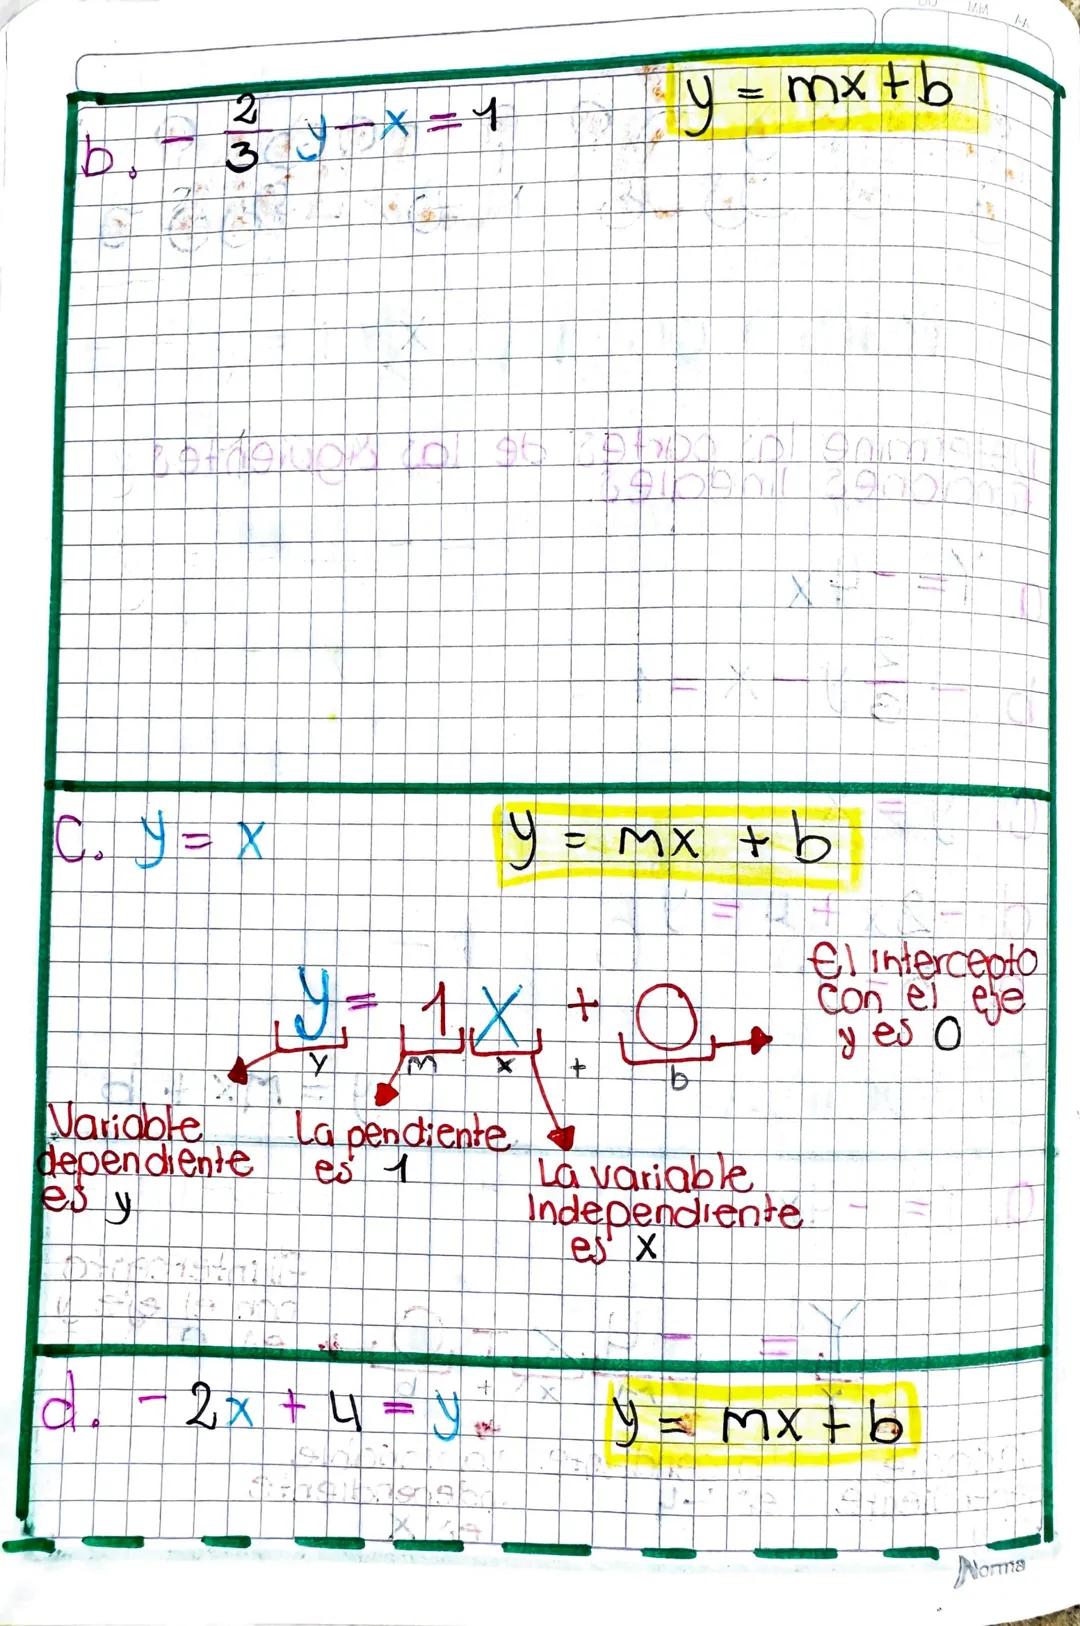 b. - 2/3 y - x = 1
y = mx + b
c. y = x
y = mx + b
y = 1 x + 0
y m x + b
El intercepto
con el eje
y es 0
Variable
dependiente
es y
La pendiente
es 1
La variable
Independiente
es x
d. - 2x + 4 = y.
y = mx + b
Norma